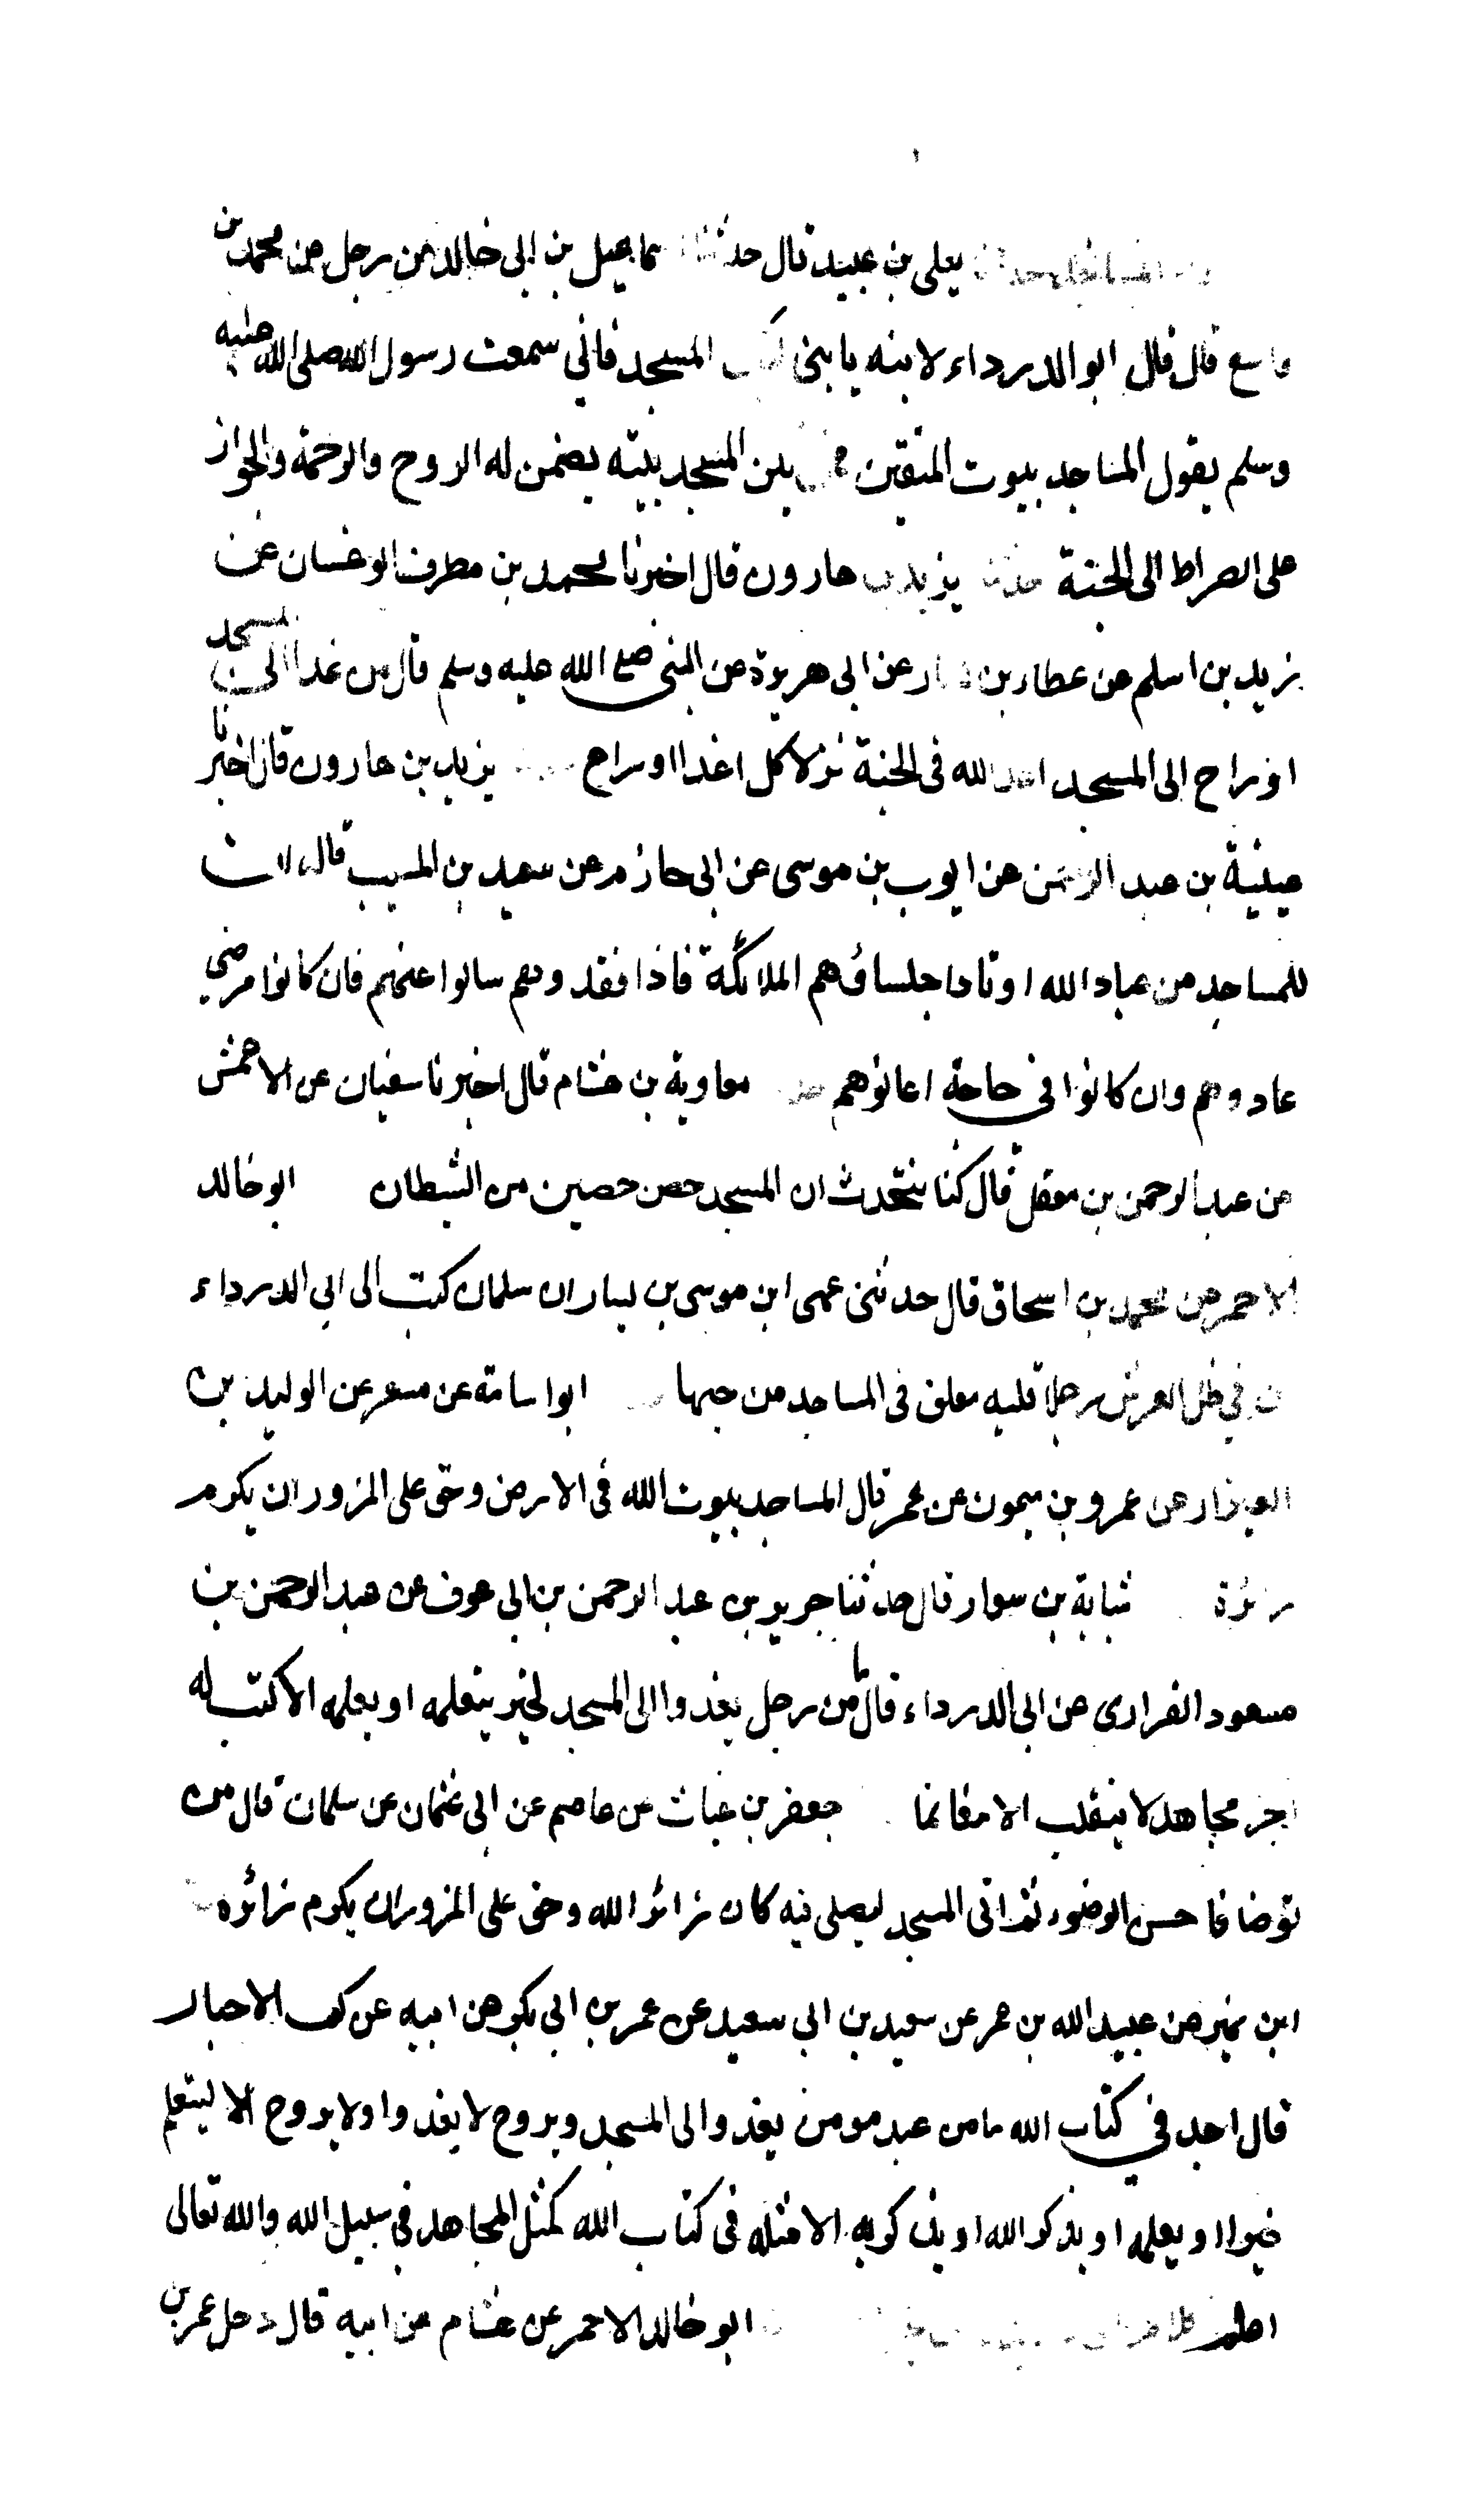 يعلى بن عبيد قال حدثنا اسماعيل بن ابى خالد عن رجل عن محمد بن
واسع قال قال ابو الدرداء لابنه يا بنى المسجد فانى سمعت رسول الله صلى الله عليه
وسلم يقول المساجد بيوت المتقين فمن يكن المسجد بيته يضمن له الروح والرحمة والجواز
على الصراط الى الجنة حدثنا يزيد بن هارون قال اخبرنا محمد بن مطرف ابو غسان عن
زيد بن اسلم عن عطاء بن يسار عن ابى هريرة عن النبى صلى الله عليه وسلم قال من غدا الى المسجد
او راح الى المسجد اعد الله فى الجنة نزلا كلما غدا او راح يزيد بن هارون قال اخبرنا
عيينة بن عبد الرحمن عن ايوب بن موسى عن ابى حازم عن سعيد بن المسيب قال ان
للمساجد من عباد الله اوتادا جلساؤهم الملائكة فاذا فقدوهم سالوا عنهم فان كانوا مرضى
عادوهم وان كانوا فى حاجة اعانوهم معاوية بن هشام قال اخبرنا سفيان عن الاعمش
عن عبد الرحمن بن معقل قال كنا نتحدث ان المسجد حصن حصين من الشيطان ابو خالد
الاحمر عن محمد بن اسحاق قال حدثنى عمى ابن موسى بن يسار ان سلمان كتب الى ابى الدرداء
ان فى ظل العرش رجلا قلبه معلق فى المساجد من حبها ابو اسامة عن مسعر عن الوليد بن
العيزار عن عمرو بن ميمون عن عمر قال المساجد بيوت الله فى الارض وحق على المزور ان يكرم
زائره شبابة بن سوار قال حدثنا جرير بن عبد الرحمن بن ابى عوف عن عبد الرحمن بن
مسعود الفزارى عن ابى الدرداء قال ما من رجل يغدوا الى المسجد لخير يتعلمه او يعلمه الا كتب له
اجر مجاهد لا ينقلب الا مغانما جعفر بن غياث عن عاصم عن ابى عثمان عن سلمان قال من
توضا فاحسن الوضوء ثم اتى المسجد ليصلى فيه كان زائرا لله وحق على المزور ان يكرم زائره
ابن نمير عن عبيد الله بن عمر عن سعيد بن ابى سعيد عن عمر بن ابى بكر عن ابيه عن كعب الاحبار
قال اجد فى كتاب الله ما من عبد مومن يغدوا الى المسجد ويروح لا يغدوا ولا يروح الا ليتعلم
خيرا او يعلمه او يذكر الله او يذكر به الا مثله فى كتاب الله كمثل المجاهد فى سبيل الله والله تعالى
اعلم ابو خالد الاحمر عن هشام عن ابيه قال دخل عمر بن